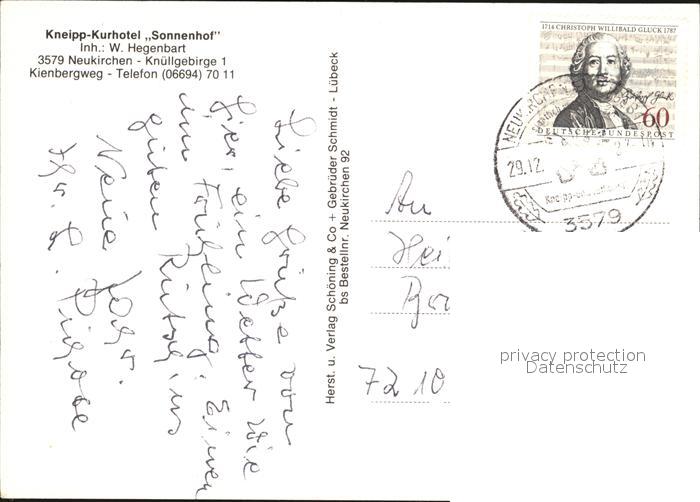 Kneipp-Kurhotel „Sonnenhof"
Inh.: W. Hegenbart
3579 Neukirchen - Knüllgebirge 1
Kienbergweg - Telefon (06694) 70 11
Liebe Grüße von
hier, ein Wetter wie
im Frühling! Einen
guten Rutsch ins
Neue Jahr.
Herst. u. Verlag Schöning & Co + Gebrüder Schmidt - Lübeck
bs Bestellnr. Neukirchen 92
1714 CHRISTOPH WILLIBALD GLUCK 1787
60
DEUTSCHE BUNDESPOST
NEUKIRCHEN
29.12.
3579
An
Hei
Bor
7210
privacy protection
Datenschutz